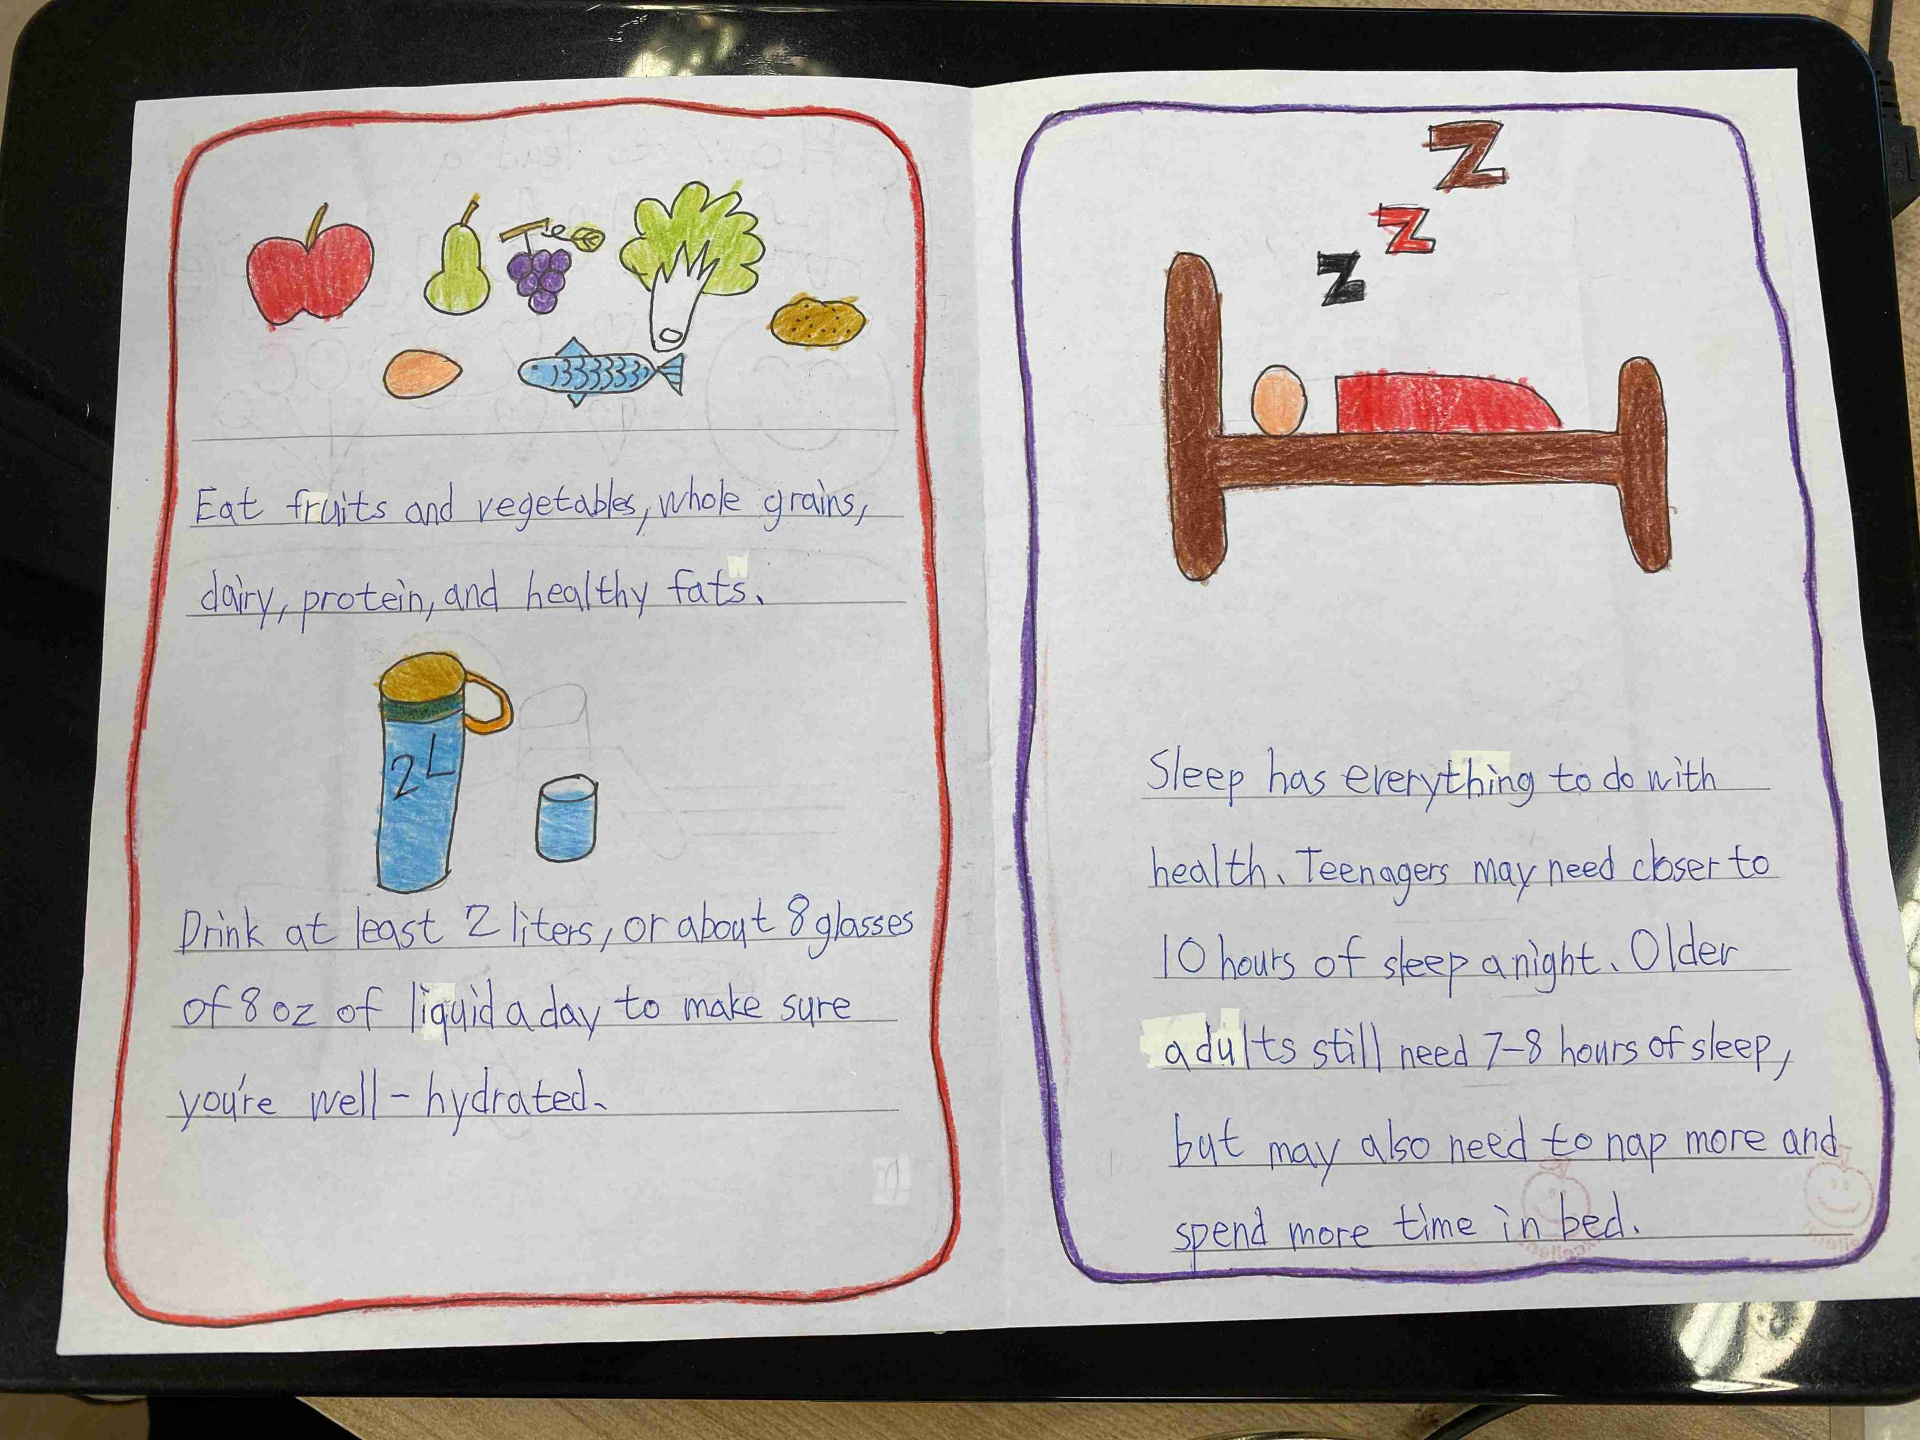 Eat fruits and vegetables, whole grains,
dairy, protein, and healthy fats.
2L
Drink at least 2 liters, or about 8 glasses
of 8 oz of liquid a day to make sure
you're well-hydrated.
Z
Z
Z
Sleep has everything to do with
health. Teenagers may need closer to
10 hours of sleep a night. Older
adults still need 7-8 hours of sleep,
but may also need to nap more and
spend more time in bed.